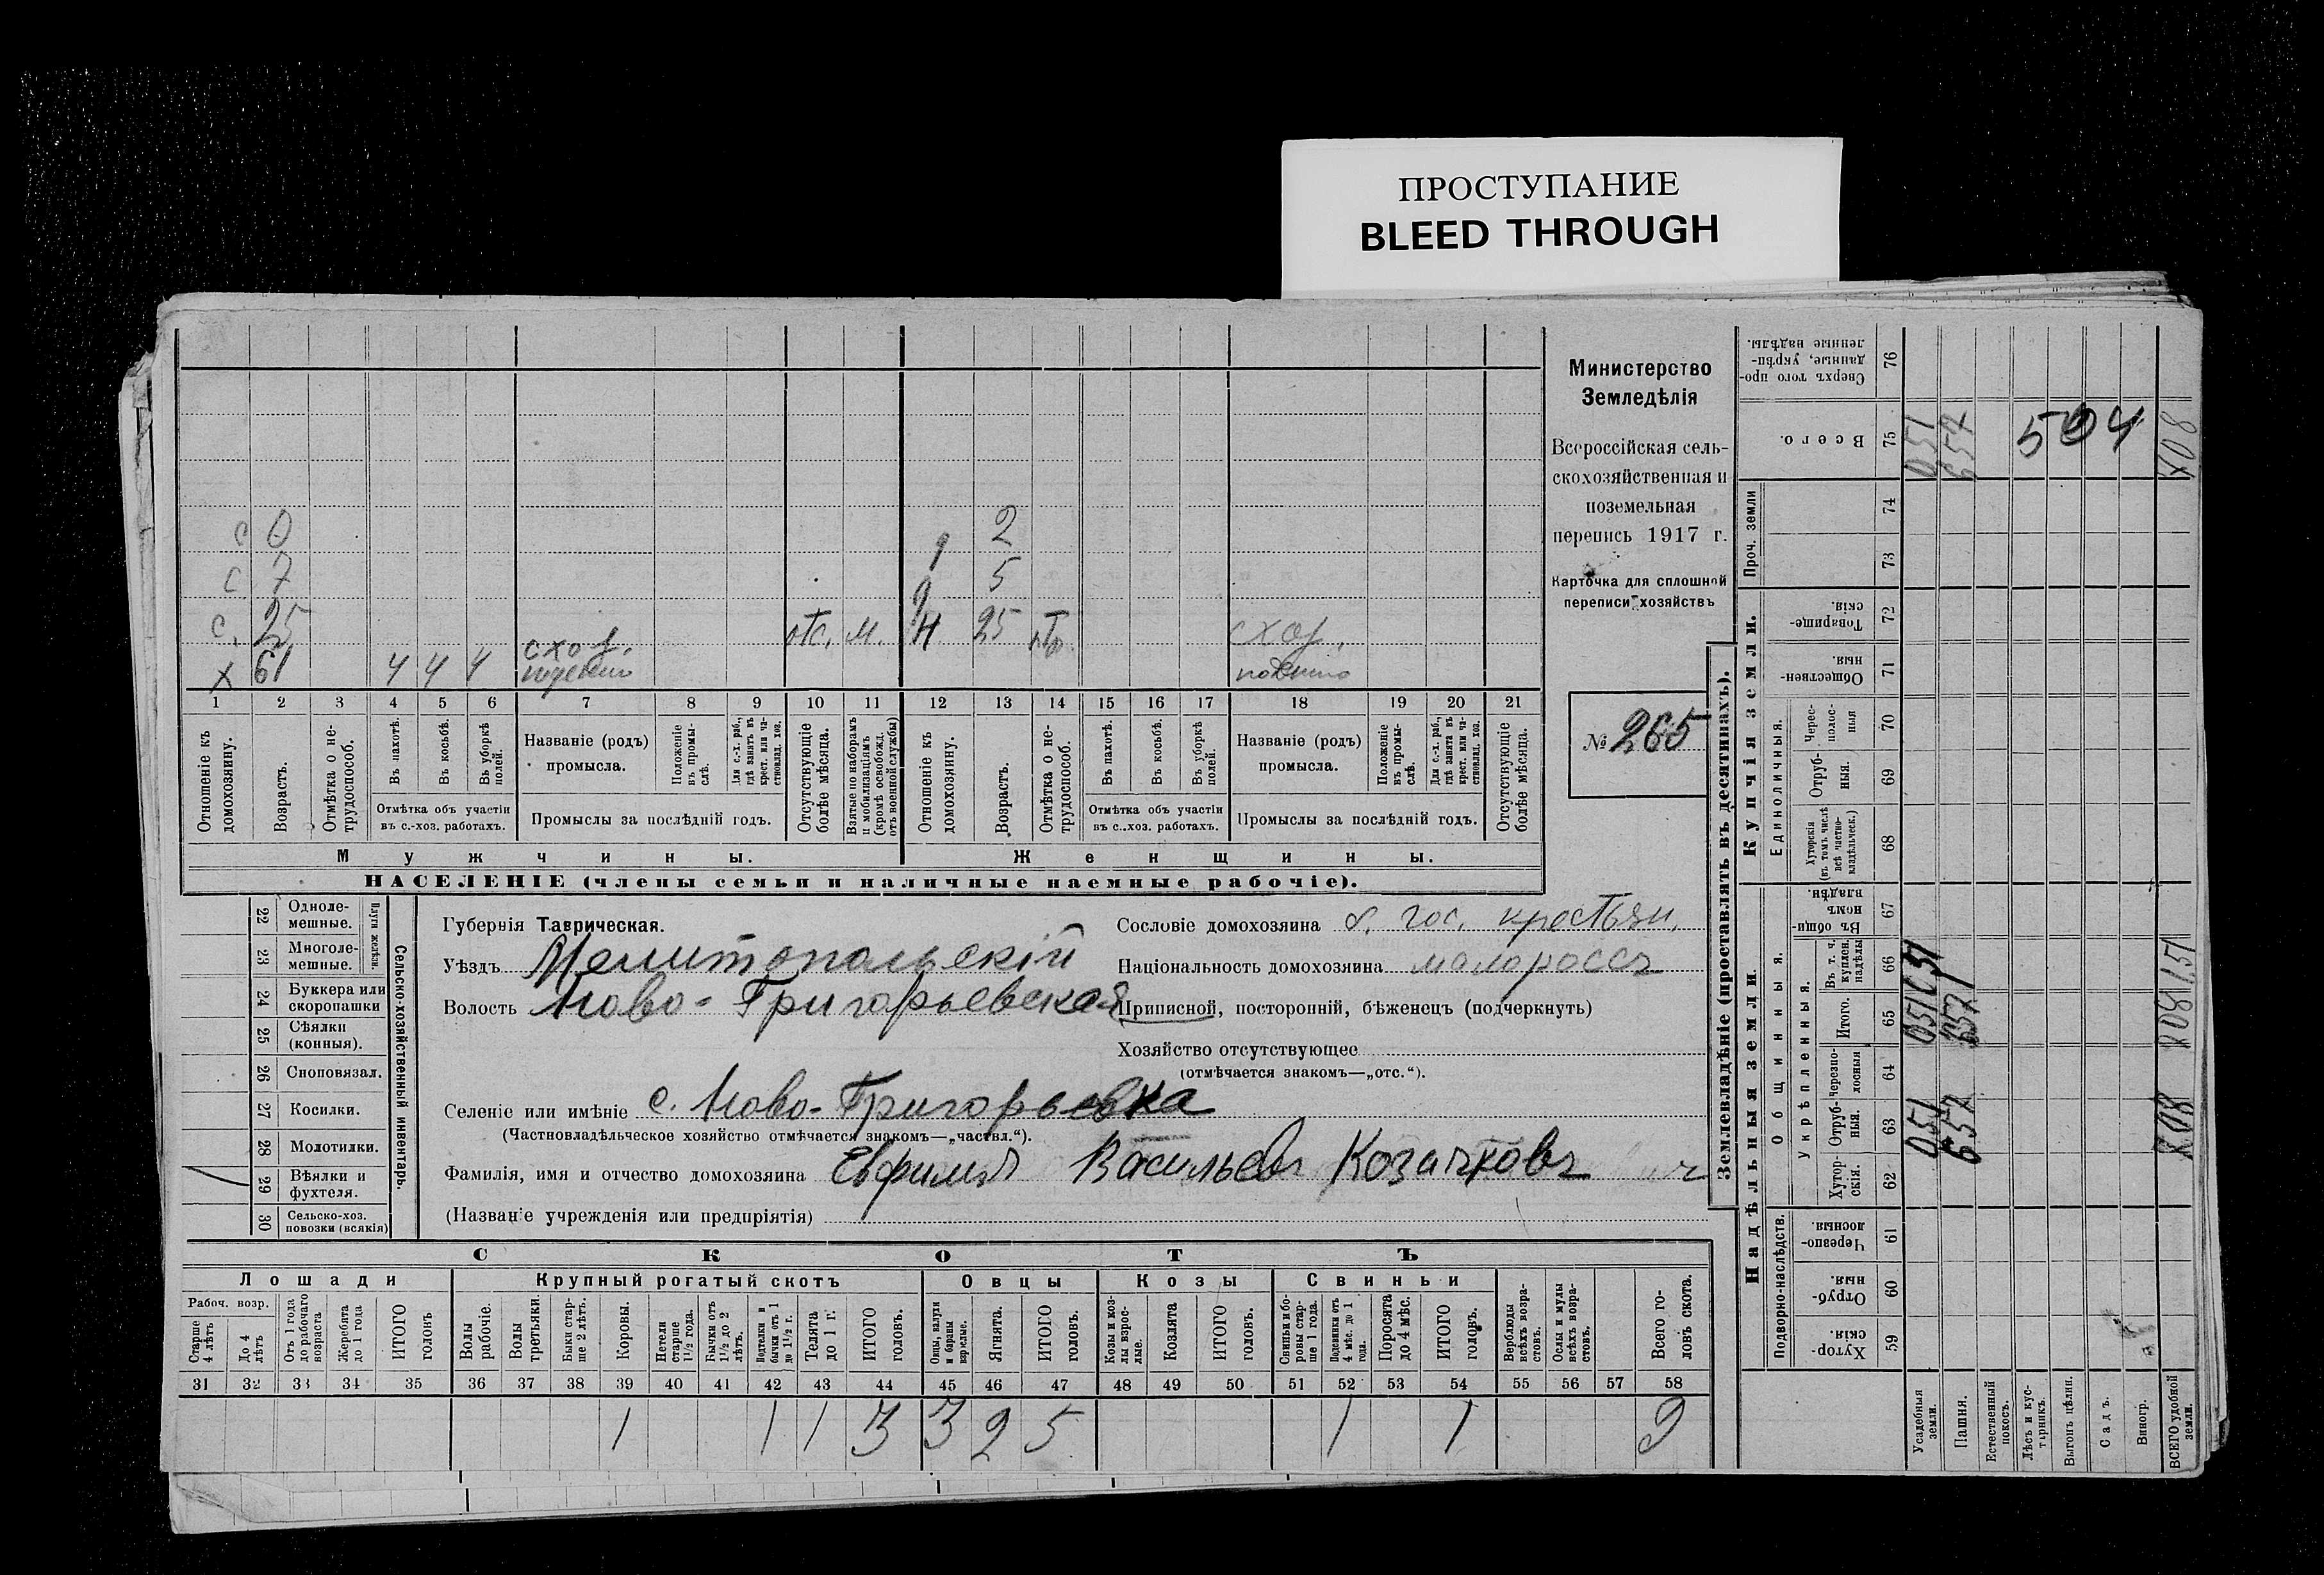 ПРОСТУПАНИЕ
BLEED THROUGH
Министерство
Земледѣлія
Всероссійская сель-
скохозяйственная и
поземельная
перепись 1917 г.
Карточка для сплошной
переписи хозяйствъ
№ 265
с 0
с 7
с. 25 отс. м.
х 61 4 4 4 сход. поденно
2
5
Н 25
поденно
1 2 3 4 5 6 7 8 9 10 11 12 13 14 15 16 17 18 19 20 21
Отношеніе къ домохозяину.
Возрастъ.
Отмѣтка о не-трудоспособ.
Въ пахотѣ.
Въ косьбѣ.
Въ уборкѣ полей.
Отмѣтка объ участіи въ с.-хоз. работахъ.
Названіе (родъ) промысла.
Положеніе въ промы-слѣ.
Для с.-х. раб., гдѣ занятъ въ крест. или ча-стновлад. хоз.
Промыслы за послѣдній годъ.
Отсутствующіе болѣе мѣсяца.
Взятые по наборамъ и мобилизаціямъ (кромѣ освобожд. отъ военной службы)
Отношеніе къ домохозяину.
Возрастъ.
Отмѣтка о не-трудоспособ.
Въ пахотѣ.
Въ косьбѣ.
Въ уборкѣ полей.
Отмѣтка объ участіи въ с.-хоз. работахъ.
Названіе (родъ) промысла.
Положеніе въ промы-слѣ.
Для с.-х. раб., гдѣ занята въ крест. или ча-стновлад. хоз.
Промыслы за послѣдній годъ.
Отсутствующіе болѣе мѣсяца.
Мужчины.
Женщины.
НАСЕЛЕНІЕ (члены семьи и наличные наемные рабочіе).
22 Одноле-мешные.
23 Многоле-мешные.
Плуги желѣзн.
24 Буккера или скоропашки
25 Сѣялки (конныя).
26 Сноповязал.
27 Косилки.
28 Молотилки.
29 Вѣялки и фухтеля.
30 Сельско-хоз. повозки (всякія)
Сельско-хозяйственный инвентарь.
Губернія Таврическая.
Уѣздъ Мелитопольскій
Волость Ново-Григорьевская
Селеніе или имѣніе с. Ново-Григорьевка
(Частновладѣльческое хозяйство отмѣчается знакомъ—„частвл.“).
Фамилія, имя и отчество домохозяина Евфимій Васильевъ Козачковъ
(Названіе учрежденія или предпріятія)
Сословіе домохозяина б. гос. крестьян.
Національность домохозяина малороссъ
Приписной, посторонній, бѣженецъ (подчеркнуть)
Хозяйство отсутствующее
(отмѣчается знакомъ—„отс.“).
СКОТЪ
Лошади
Крупный рогатый скотъ
Овцы
Козы
Свиньи
Рабоч. возр.
Старше 4 лѣтъ
До 4 лѣтъ
Отъ 1 года до рабочаго возраста
Жеребята до 1 года
ИТОГО головъ
Волы рабочіе.
Волы третьяки.
Быки стар-ше 2 лѣтъ.
Коровы.
Нетели старше 1½ года.
Бычки отъ 1½ до 2 лѣтъ.
Подтелки и бычки отъ 1 до 1½ г.
Телята до 1 г.
ИТОГО головъ.
Овцы, валухи и бараны взрослые.
Ягнята.
ИТОГО головъ.
Козы и коз-лы взрос-лые.
Козлята
ИТОГО головъ.
Свиньи и бо-ровы стар-ше 1 года.
Подсвинки отъ 4 мѣс. до 1 года.
Поросята до 4 мѣс.
ИТОГО головъ.
Верблюды всѣхъ возра-стовъ.
Ослы и мулы всѣхъ возра-стовъ.
Всего го-ловъ скота.
31 32 33 34 35 36 37 38 39 40 41 42 43 44 45 46 47 48 49 50 51 52 53 54 55 56 57 58
1 1 1 3 3 2 5 1 1 9
Землевладѣніе (проставлять въ десятинахъ).
Надѣльныя земли.
Купчія земли.
Проч. земли
Подворно-наслѣдств.
Общинныя.
Укрѣпленныя.
Единоличныя.
59 Хутор-скія.
60 Отруб-ныя.
61 Черезпо-лосныя
62 Хутор-скія.
63 Отруб-ныя.
64 Черезпо-лосныя
65 Итого.
66 Въ т. ч. куплен. надѣлы
67 Въ общи-номъ владѣн.
68 Хуторскія (въ томъ числѣ всѣ частно-владѣльческ.)
69 Отруб-ныя.
70 Черес-полос-ныя
71 Обществен-ныя.
72 Товарище-скія.
73
74
75 Всего.
76 Сверхъ того про-данные, укрѣп-ленные надѣлы.
Усадебныя земли.
Пашня.
Естественный покосъ.
Лѣсъ и кус-тарникъ.
Выгонъ цѣлин.
Садъ.
Виногр.
ВСЕГО удобной земли.
051 051 051
657 657
708 708
504